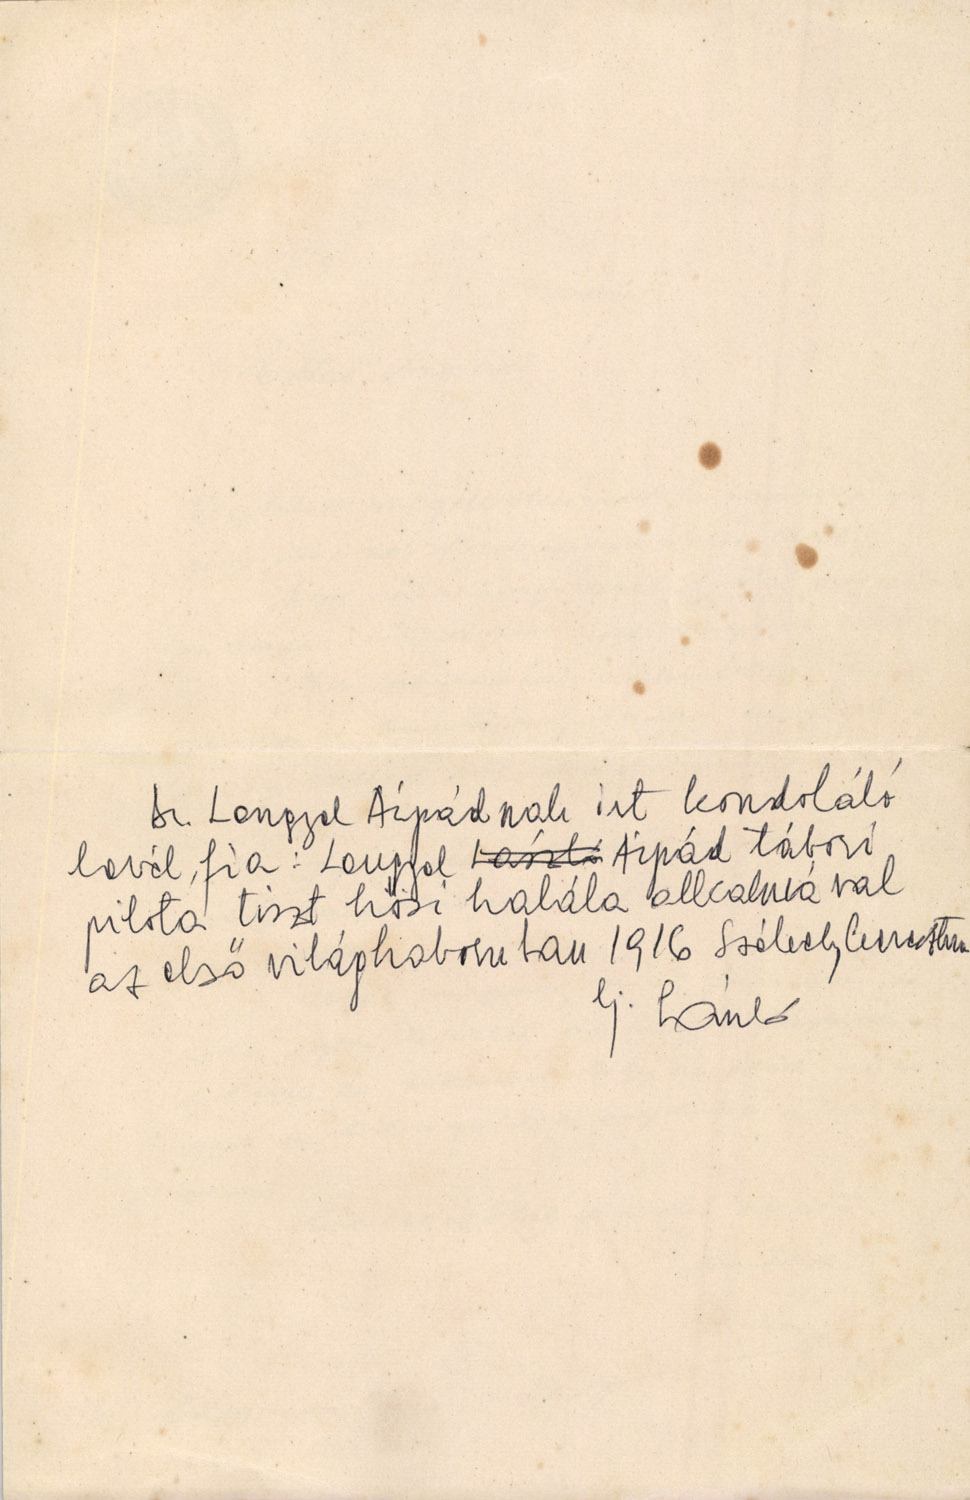 Dr. Lengyel Árpádnak irt kondoláló
levél, fia: Lengyel László Árpád tábori
pilóta tiszt hősi halála alkalmával
az első világháboruban 1916